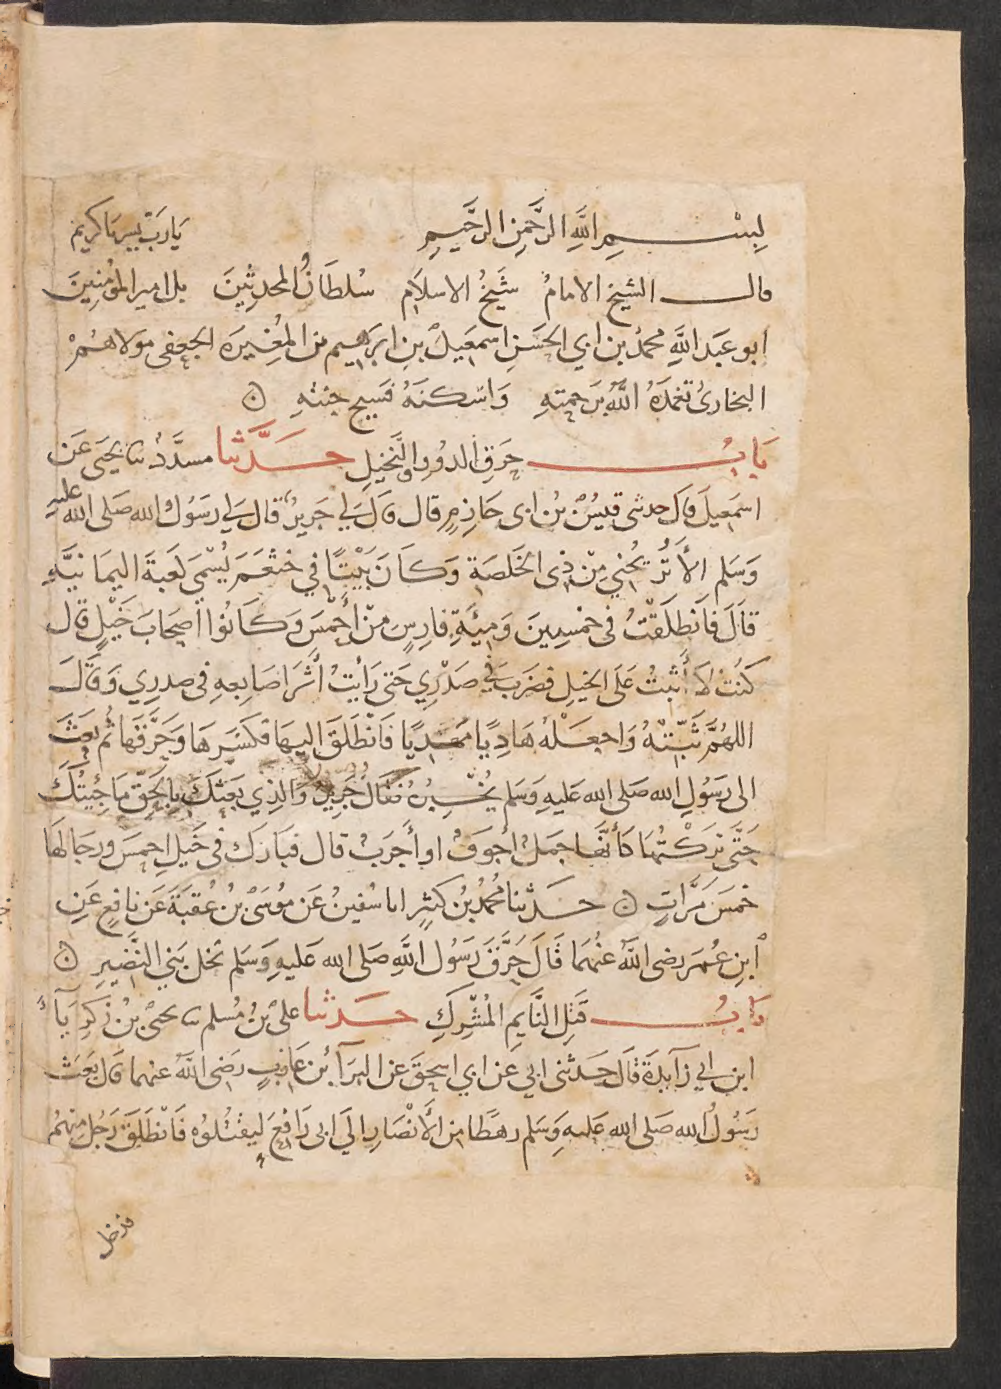 بِسْمِ اللَّهِ الرَّحْمَنِ الرَّحِيمِ يَا رَبِّ يسر يَا كريم
قال الشيخ الامامُ شَيْخُ الاسلَام سُلطَانُ المحدثِينَ بل امير المؤمِنِينَ
ابو عَبد اللَّهِ محمدُ بن ابي الحَسَنِ اسمَعِيلَ بنِ ابرَهِيم بن المُغِيرَة الجعفى مولاهُمْ
البخارىُ تغمدَهُ اللَّهُ برَحمتهِ وَاسْكنَهُ فَسيح جنتهِ ۞
بَابُ حَرَقِ الدُورِ وَالنَّخِيلِ حَدَّثَنا مسدَّدُ ثنا يَحيَى عَن
اسمَعِيلَ قالَ حدثنى قيسُ بْنُ ابى حَازِمٍ قال قالَ لى جَرِيرٌ قال لي رَسُولُ الله صَلى الله عليهِ
وَسَلم الأَ تُرِيحُنِي مِنْ ذِى الخَلَصَةِ وَكَانَ بَيْتًا فِي خثْعَمَ يُسْمَى كَعبَةَ اليمَانيَّةِ
قَالَ فَانطَلَقْتُ فِى خمْسِينَ وَمِيَةِ فارِسٍ مِنْ أَحْمَسَ وَكَانُوا اصْحَابَ خَيْلٍ قال
كنتُ لاَ أَثبتُ عَلَى الخيلِ فضَرَبَ فِي صَدْرِي حَتى رَأيتُ أَثَرَ اصَابِعهِ فِى صدرِي وَقَالَ
اللهُمَّ ثَبّتْهُ وَاجعَلْهُ هَادِيًا مهْدِيًا فَانْطَلَقَ اليهَا فكسَرَهَا وَحَرَّقَها ثُم بعَثَ
الى رَسُولِ الله صَلى الله عَليهِ وَسَلم يُخْبِرُهُ فقَالَ جَرِيرٌ وَالذِي بَعَثكَ بِالحَقّ مَا جِئتُكَ
حَتَّى تركْتُهَا كَأنَّهَا جمَلٌ اجْوَفُ او أَجرَبُ قال فبَارَك فِى خَيلِ احمسَ ورجَالهَا
خمْسَ مَرَّاتٍ ۞ حَدثنا مُحمدُ بْنُ كثيرٍ انا سُفينُ عَن مُوسَى بنُ عُقبَةَ عَن نافعٍ عَنِ
ابنِ عُمرَ رضى اللَّهُ عنهُما قَالَ حَرَّقَ رَسُول اللَّهِ صَلى الله عَليهِ وَسَلم نخل بَنِي النَّضِيرِ ۞
بَابُ قَتلِ النَّايمِ المُشْرِكِ حَدثنا علىُّ بنُ مُسلمٍ ثنا يَحيىَ بنُ زكرِيَآءَ
ابن ابي زآيدَةَ قَالَ حَدثنى ابِي عَن ابي اسحقَ عَن البَرَآءِ بْنِ عَازبٍ رَضى اللَّهُ عنهما قال بَعَثَ
رَسُولُ الله صَلى الله عَليهِ وَسَلم رهطًا مِن الأَنْصَارِ الَى ابِى رَافعٍ ليقْتُلوُه فَانْطَلَقَ رَجُلٌ مِنهُمْ
فدخل